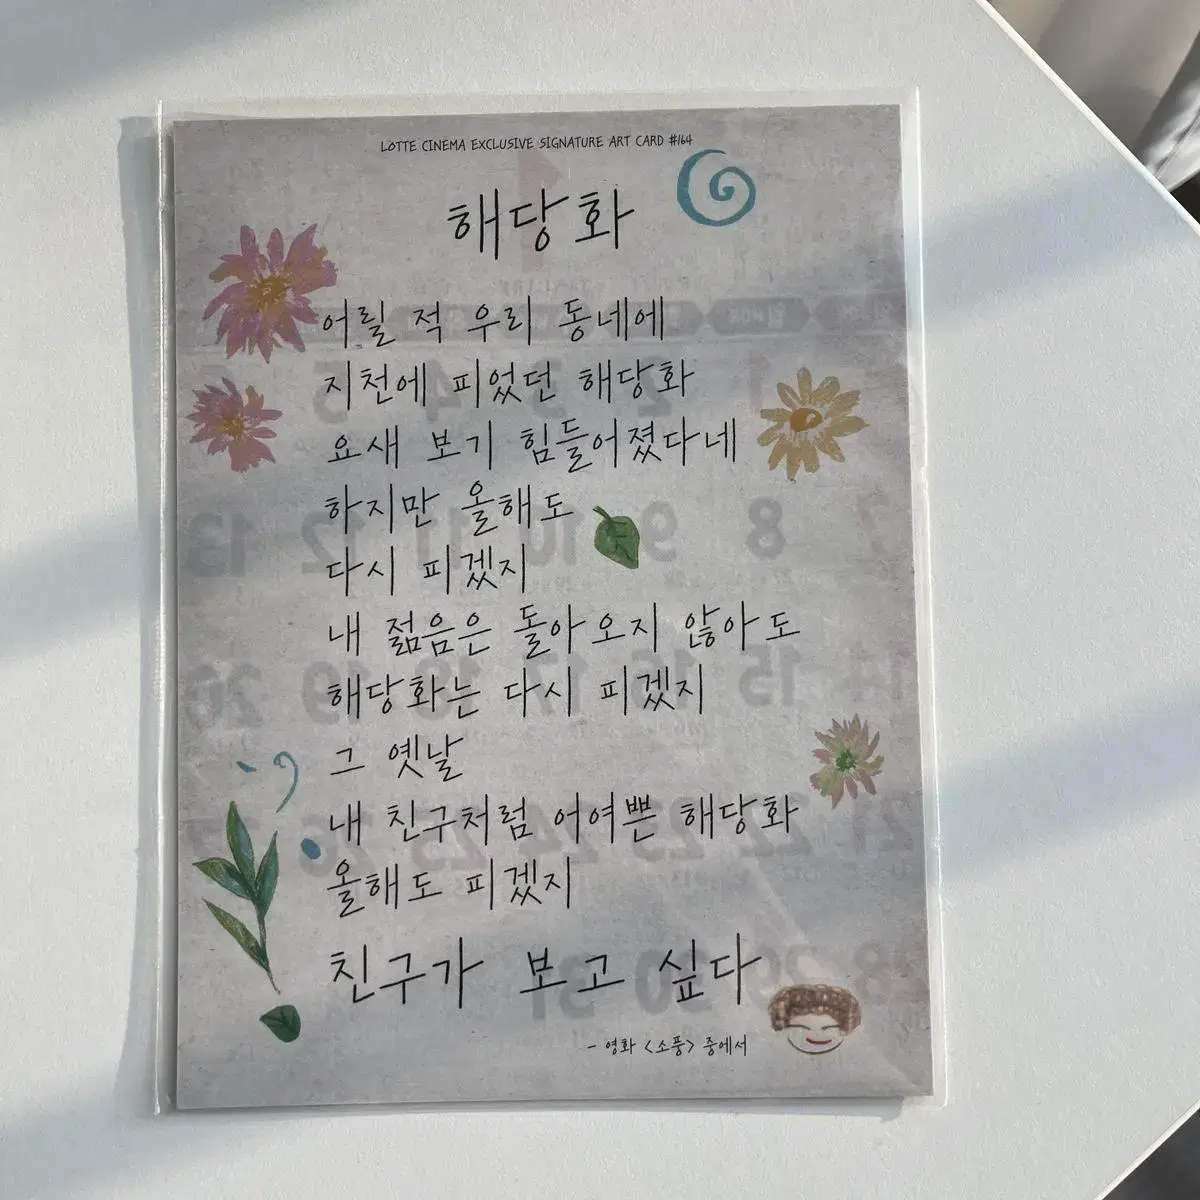 LOTTE CINEMA EXCLUSIVE SIGNATURE ART CARD #164
해당화
어릴 적 우리 동네에
지천에 피었던 해당화
요새 보기 힘들어졌다네
하지만 올해도
다시 피겠지
내 젊음은 돌아오지 않아도
해당화는 다시 피겠지
그 옛날
내 친구처럼 어여쁜 해당화
올해도 피겠지
친구가 보고 싶다
- 영화 <소풍> 중에서